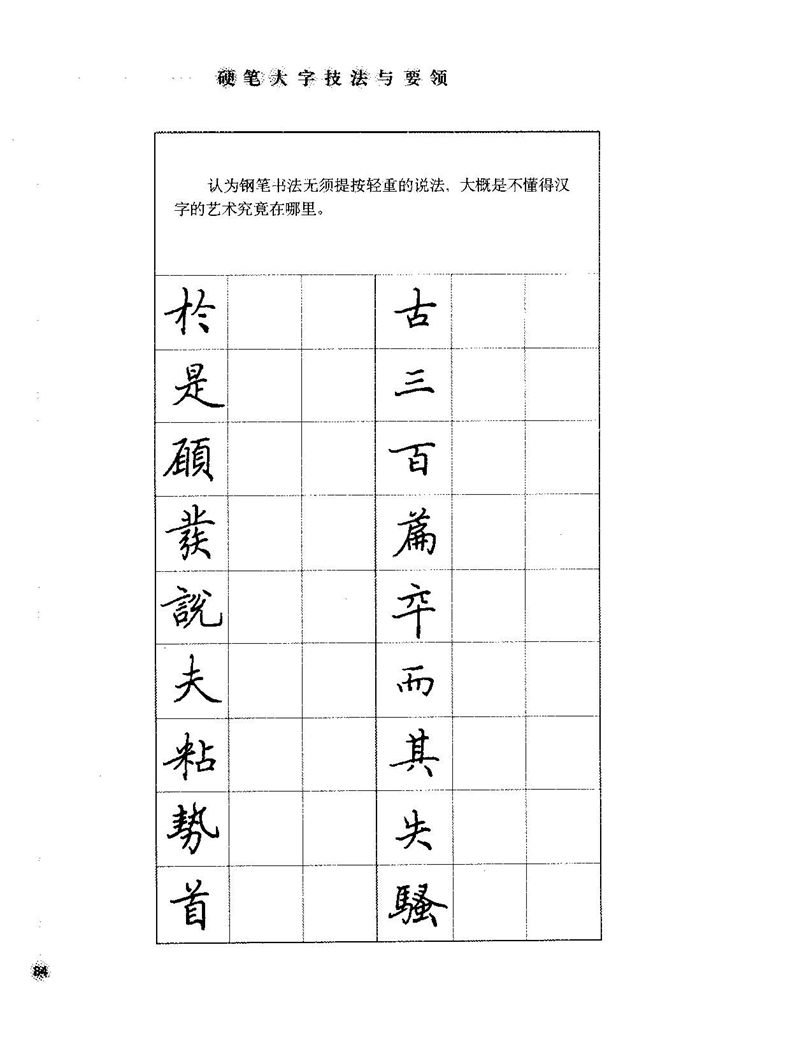 硬笔大字技法与要领
认为钢笔书法无须提按轻重的说法，大概是不懂得汉
字的艺术究竟在哪里。
於 古
是 三
頋 百
發 篇
說 卒
夫 而
粘 其
勢 失
首 騷
84